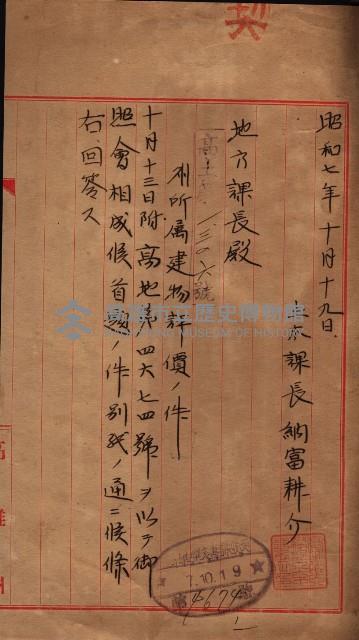 契
昭和七年十月十九日
課長納富耕介
地方課長殿
高土第一三二六號
所属建物評價ノ件
十月十三日附高地第四六七四號ヲ以テ御
照會相成候首題ノ件別紙ノ通ニ候條
右回答ス
7.10.19
4674
高雄州
高雄市立歷史博物館
MUSEUM OF HISTORY